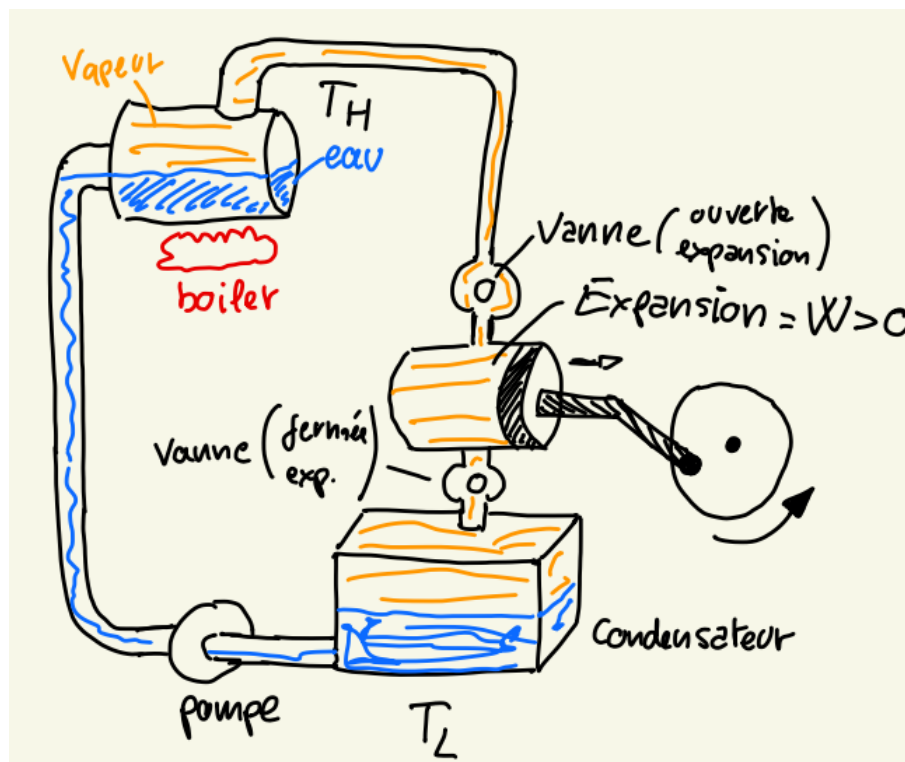 Vapeur
T_H
eau
boiler
Vanne (ouverte
expansion)
Expansion = W > 0
Vanne (fermée
exp.)
Condensateur
pompe
T_L